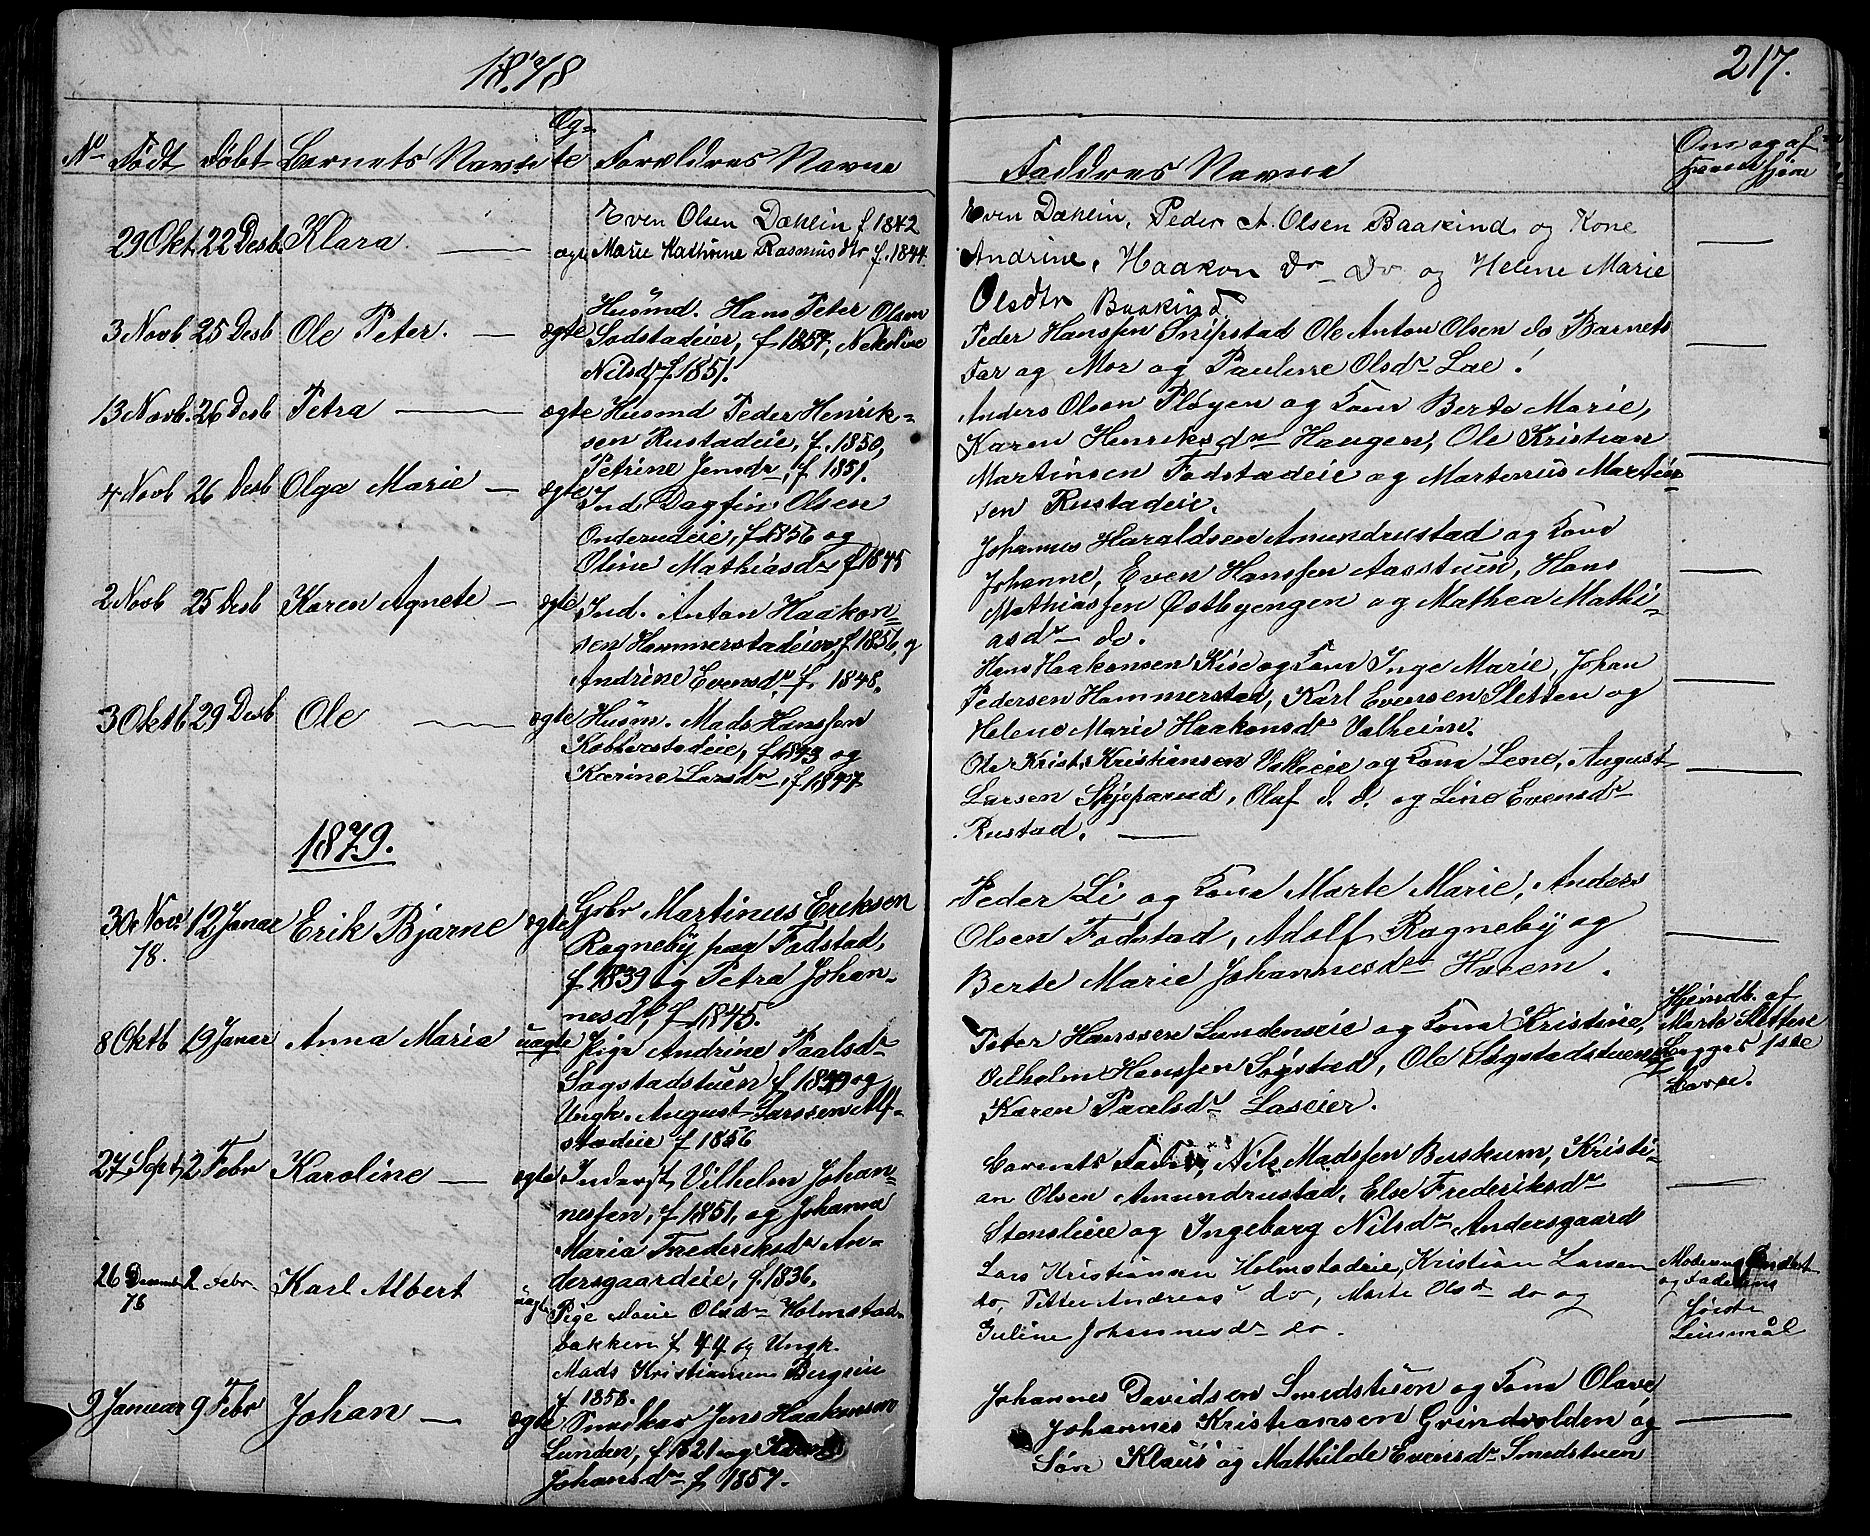 1878
217.
No Födt Döbt Barnets Navne Ægte Forældres Navne
Faddres Navne
29 Okt. 22 Desb Klara — ægte
Even Olsen Dæhlin f 1842
Marie Kathrine Rasmusdtr f. 1844.
Even Dæhlin, Peder A. Olsen Baakind og Kone
Andrine, Haakon Do Do og Helene Marie
Olsdtr Baakind.
3 Novb 25 Desb Ole Peter. — ægte
Husmd. Hans Peter Olsen
Fodstadeier, f 1857,
Nilsdr f. 1851.
Peder Hanssen Snipstad Ole Anton Olsen do Barnets
Far og Mor og Pauline Olsdr Lae.
13 Novb. 26 Desb Petra — ægte
Husmd Peder Henrik=
sen Rustadeie, f. 1850,
Petrine Jensdr, f 1851.
Anders Olsen Pløyen og Kone Berte Marie,
Karen Henriksdr Haugen, Ole Kristian
Martinsen Fodstadeie og Martenius Martin
sen Rustadeie.
4 Novb 26 Desb Olga Marie — ægte
Ind Dagfin Olsen
Onderudeie, f 1856 og
Oline Mathiasdr f 1845
Johannes Haraldsen Amundrustad og Kone
Johanne, Even Hanssen Aasstuen, Hans
Mathiassen Østbyengen og Mathea Mathi=
asdr do.
2 Novb 25 Desb Karen Agnete — ægte
Ind. Anton Haakon=
sen Hammerstadeier, f 1856, og
Andrine Evensdr f. 1848.
Hans Haakonsen Kise og Kone Inge Marie, Johan
Pedersen Hammerstad, Karl Evensen Sletten og
Helene Marie Haakonsdr Valheim.
3 Oktb 29 Desb Ole — ægte
Husm. Mads Hanssen
Kobberstadeie, f 1843 og
Karine Larsdr, f 1847
Ole Krist. Kristiansen Valleie og Kone Lene, August
Larsen Skjeparud, Olaf d. d. og Line Evensdr
Rustad. —
1879.
30 Nov. 78. 12 Januar Erik Bjarne ægte
Gbr Martinus Eriksen
Ragneby paa Fodstad,
f 1839 og Petra Johan=
nesdr, f 1845.
Peder Li og Kone Marte Marie, Anders
Olsen Fodstad, Adolf Ragneby og
Berte Marie Johannesdr Hveem.
8 Oktb 19 Januar Anna Maria uægte
Pige Andrine Paalsdr
Søgstadstuen f 1849 og
Ungk. August Larssen Alf=
stadeie f 1856
Peter Hanssen Lundenseie og Kone Kristine,
Vilhelm Hanssen Søgstad, Ole Søgstadstuen og
Karen Paalsdr Laseier.
Hjemdb. af
Marte Sletten
27 Sept, 2 Febr Karoline — ægte
Inderst Vilhelm Johan=
nesen, f 1851, og Johanna
Maria Frederiksdr An=
dersgaardeie, f. 1836.
Barnets Fader, Nils Madssen Buskum, Kristi=
an Olsen Amundrustad, Else Frederiksdr
Stensleie og Ingeborg Nilsdr Andersgaard
26 78 2 Febr. Karl Albert uægte
Pige Marie Olsdr Holmstad
bakken f 44 og Ungk.
Mads Kristiansen Bergeie
f. 1858.
Lars Kristiansen Holmstadeie, Kristian Larsen
do, Petter Andreas do, Marte Olsdr do og
Guline Johannesdr do.
Moderens
og Faderens
første
Leiermål
9 Januar 9 Febr Johan — ægte
Snedker Jens Haakonsen
Lunden, f 1821 og
Johansdr f 1857.
Johannes Davidsen Smedstuen og Kone Olave
Johannes Kristiansen Grindvolden og
Søn Klaus og Mathilde Evensdr Smedstuen